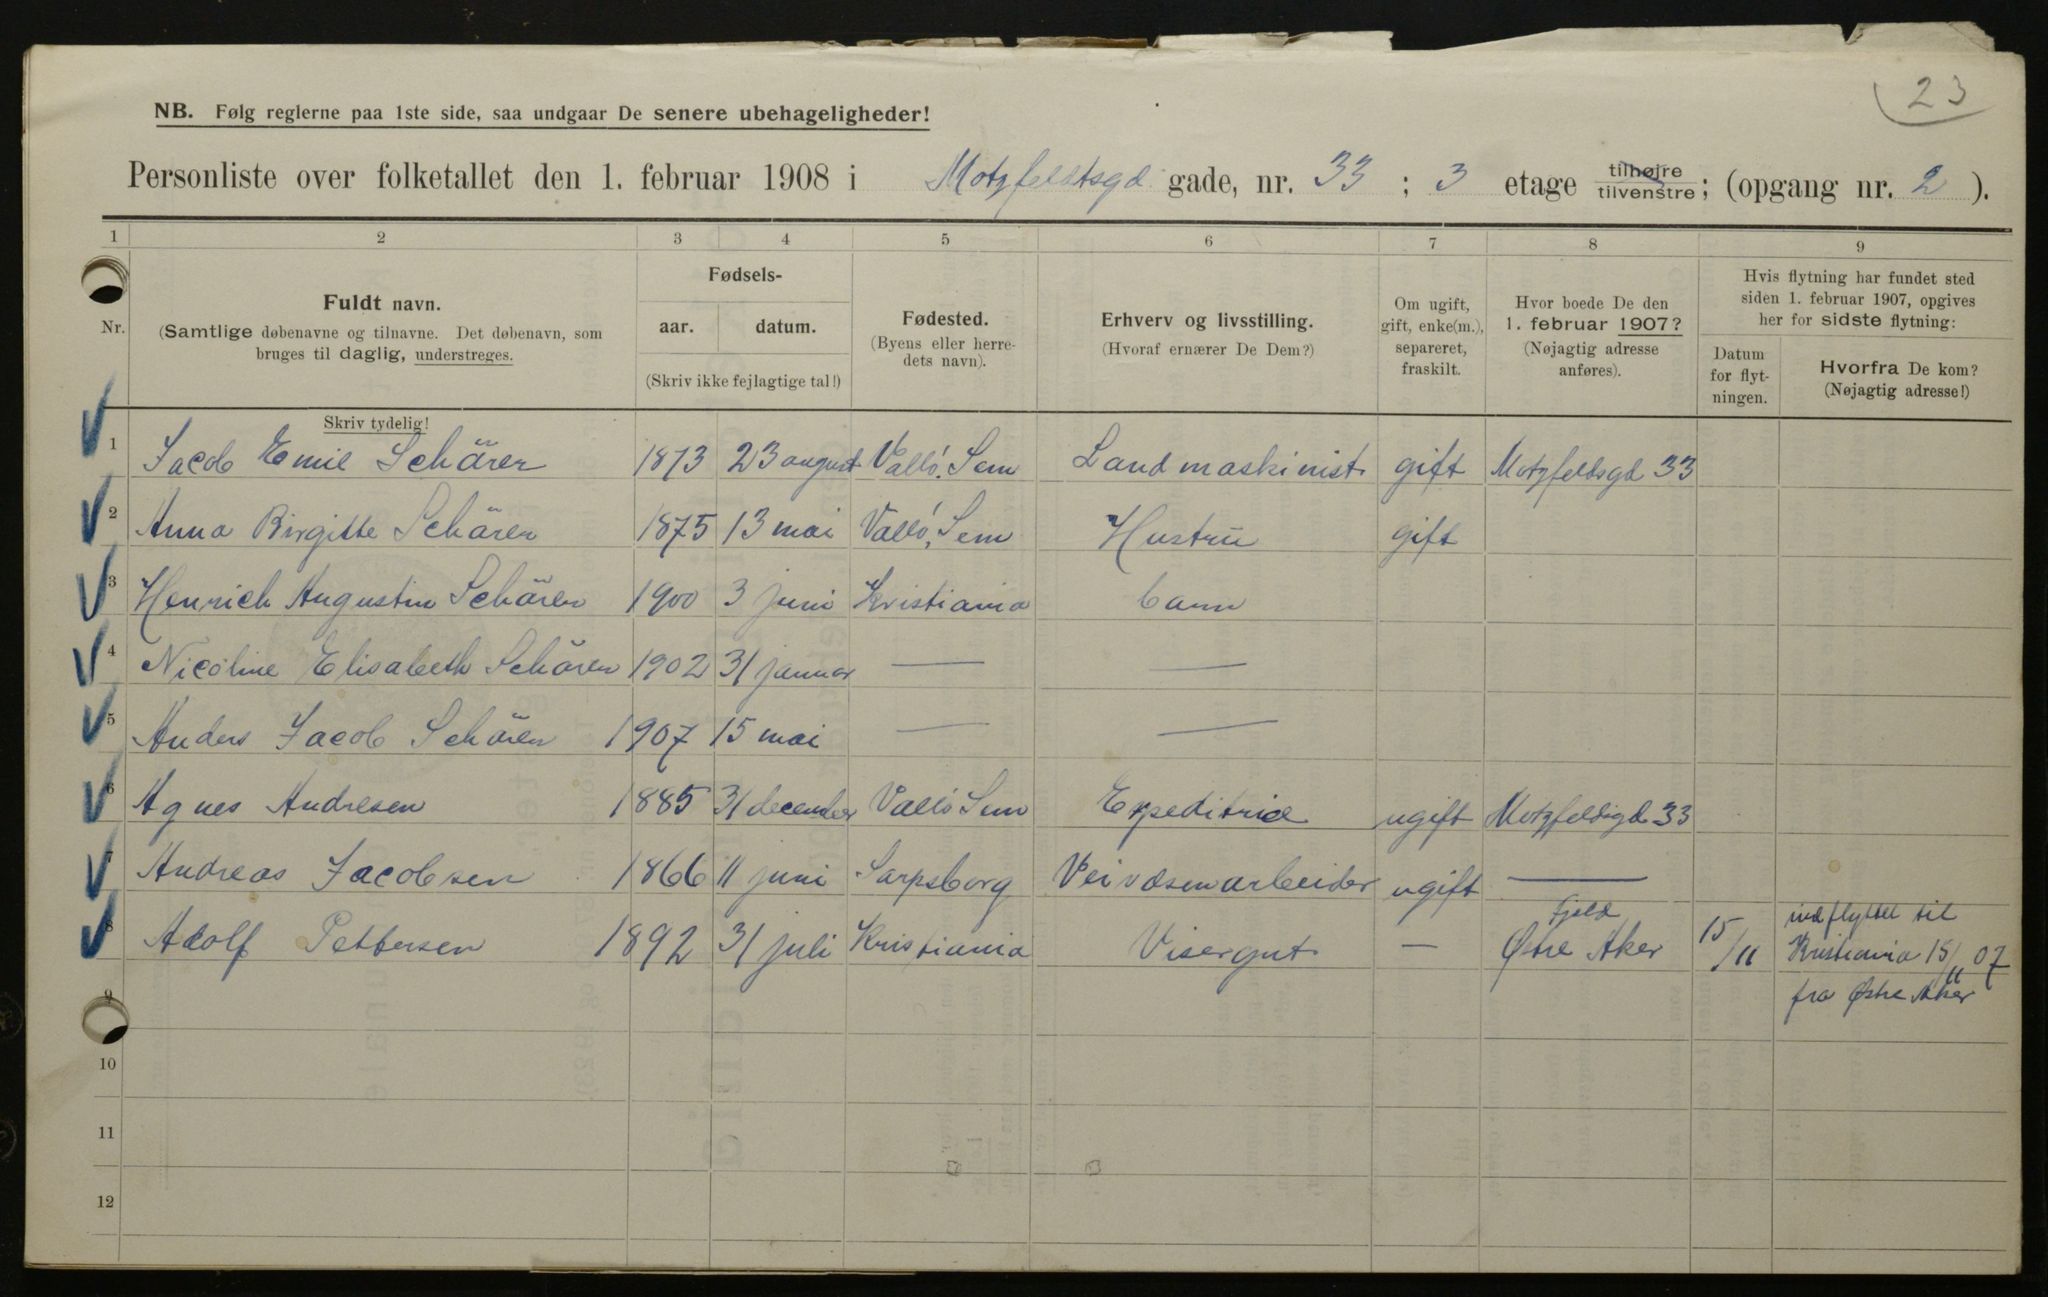 23
NB. Følg reglerne paa 1ste side, saa undgaar De senere ubehageligheder!
Personliste over folketallet den 1. februar 1908 i Motzfeldtsgd gade, nr. 33 ; 3 etage tilhøjre tilvenstre ; (opgang nr. 2 ).
1 2 3 4 5 6 7 8 9
Nr.
Fuldt navn.
(Samtlige døbenavne og tilnavne. Det døbenavn, som
bruges til daglig, understreges.
Skriv tydelig!
Fødsels-
aar. datum.
(Skriv ikke fejlagtige tal!)
Fødested.
(Byens eller herre-
dets navn).
Erhverv og livsstilling.
(Hvoraf ernærer De Dem?)
Om ugift,
gift, enke(m.),
separeret,
fraskilt.
Hvor boede De den
1. februar 1907?
(Nøjagtig adresse
anføres).
Hvis flytning har fundet sted
siden 1. februar 1907, opgives
her for sidste flytning:
Datum
for flyt-
ningen.
Hvorfra De kom?
(Nøjagtig adresse!)
1 Jacob Emil Schärer 1873 23 august Valló, Sem Landmaskinist gift Motzfeldsgd 33
2 Anna Birgitte Schärer 1875 13 mai Valló, Sem Hustru gift
3 Henrich Augustin Schärer 1900 3 juni Kristiania barn
4 Nicoline Elisabeth Schärer 1902 31 januar — —
5 Anders Jacob Schärer 1907 15 mai — —
6 Agnes Andresen 1885 31 december Valló Sem Expeditrice ugift Motzfeldsgd 33
7 Andreas Jacobsen 1866 11 juni Sarpsborg Veivæsenarbeider ugift —
8 Adolf Pettersen 1892 31 juli Kristiania Visergut — Fjeld Østre Aker 15/11 indflyttet til
Kristiania 15/11 07
fra Østre Aker
9
10
11
12